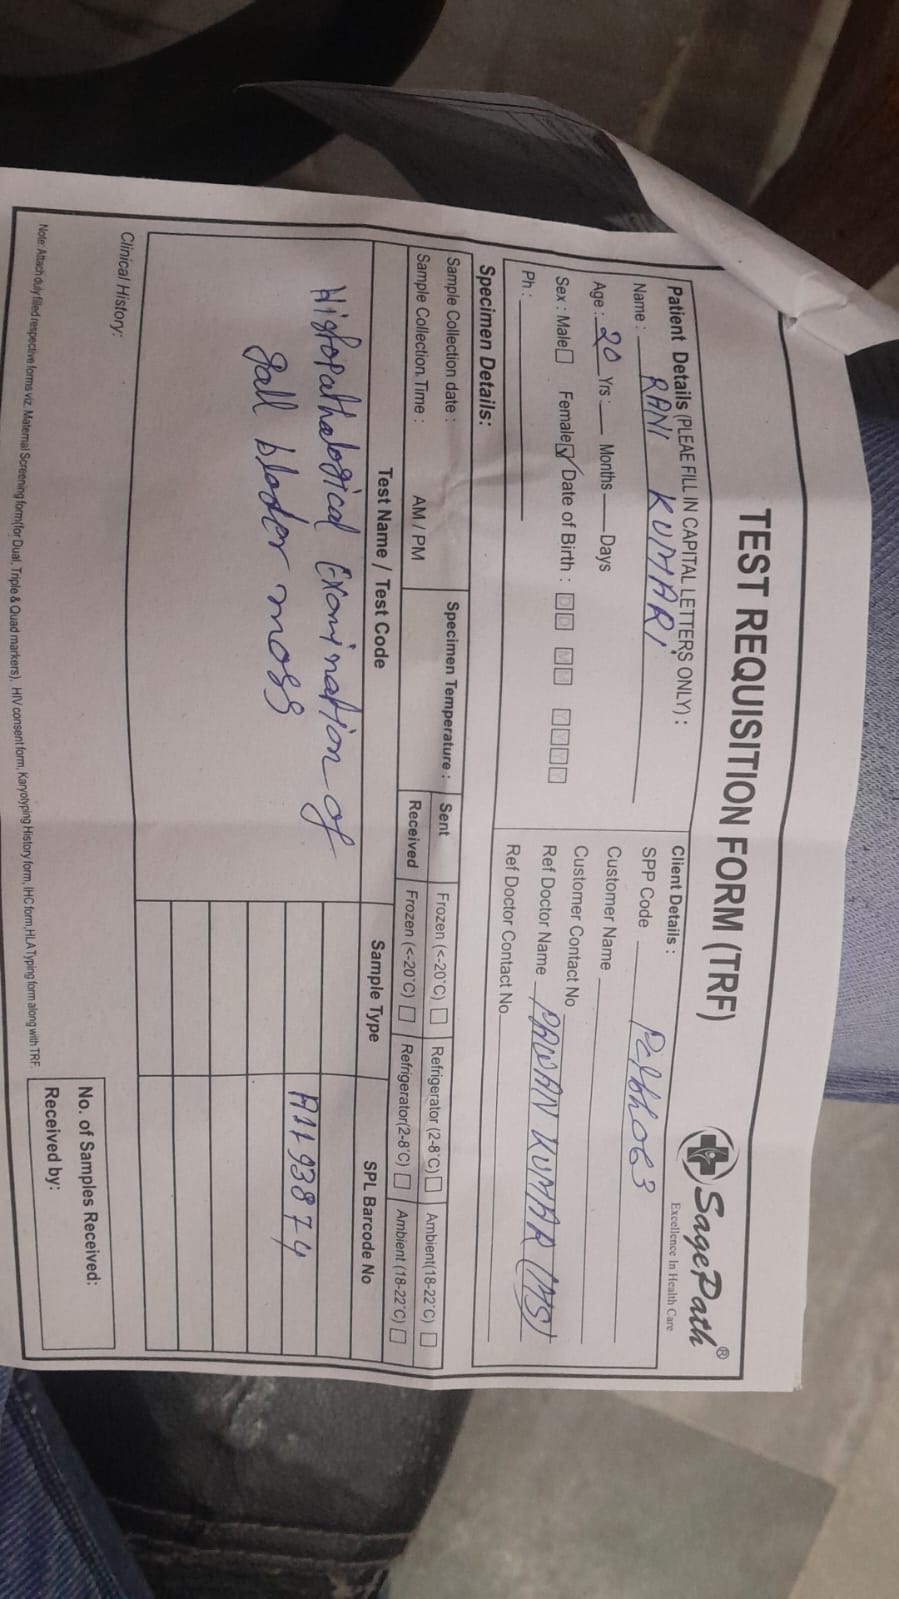 TEST REQUISITION FORM (TRF)
SagePath®
Excellence In Health Care
Patient Details (PLEAE FILL IN CAPITAL LETTERS ONLY) :
Name : RANI KUMARI
Age : 20 Yrs : Months Days
Sex : Male Female Date of Birth : DD MM YYYY
Ph :
Client Details :
SPP Code
Customer Name
Customer Contact No
Ref Doctor Name PAWAN KUMAR (MS)
Ref Doctor Contact No
Specimen Details:
Sample Collection date :
Sample Collection Time : AM / PM
Specimen Temperature :
Sent Frozen (<-20°C) Refrigerator (2-8°C) Ambient(18-22°C)
Received Frozen (<-20°C) Refrigerator(2-8°C) Ambient (18-22°C)
Test Name / Test Code Sample Type SPL Barcode No
Histopathological Examination of
gall blader mass
A1193874
Clinical History:
No. of Samples Received:
Received by:
Note: Attach duly filled respective forms viz. Maternal Screening form(for Dual, Triple & Quad markers), HIV consent form, Karyotyping History form, IHC form,HLA Typing form along with TRF.